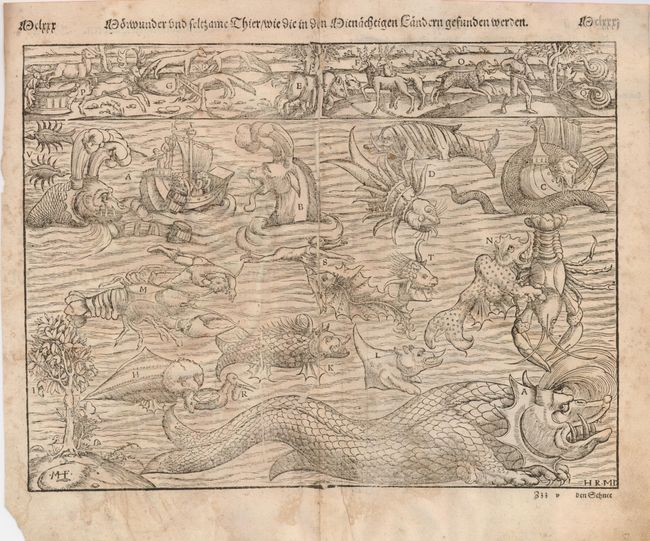 Mclxxx Mörwunder vnd seltzame Thier/wie die in den Mitnächtigen Ländern gefunden werden. Mclxxx
P G E O
A B D C
M S T N
I H R K L A
MF
HRMD
Zzz v den Schnee